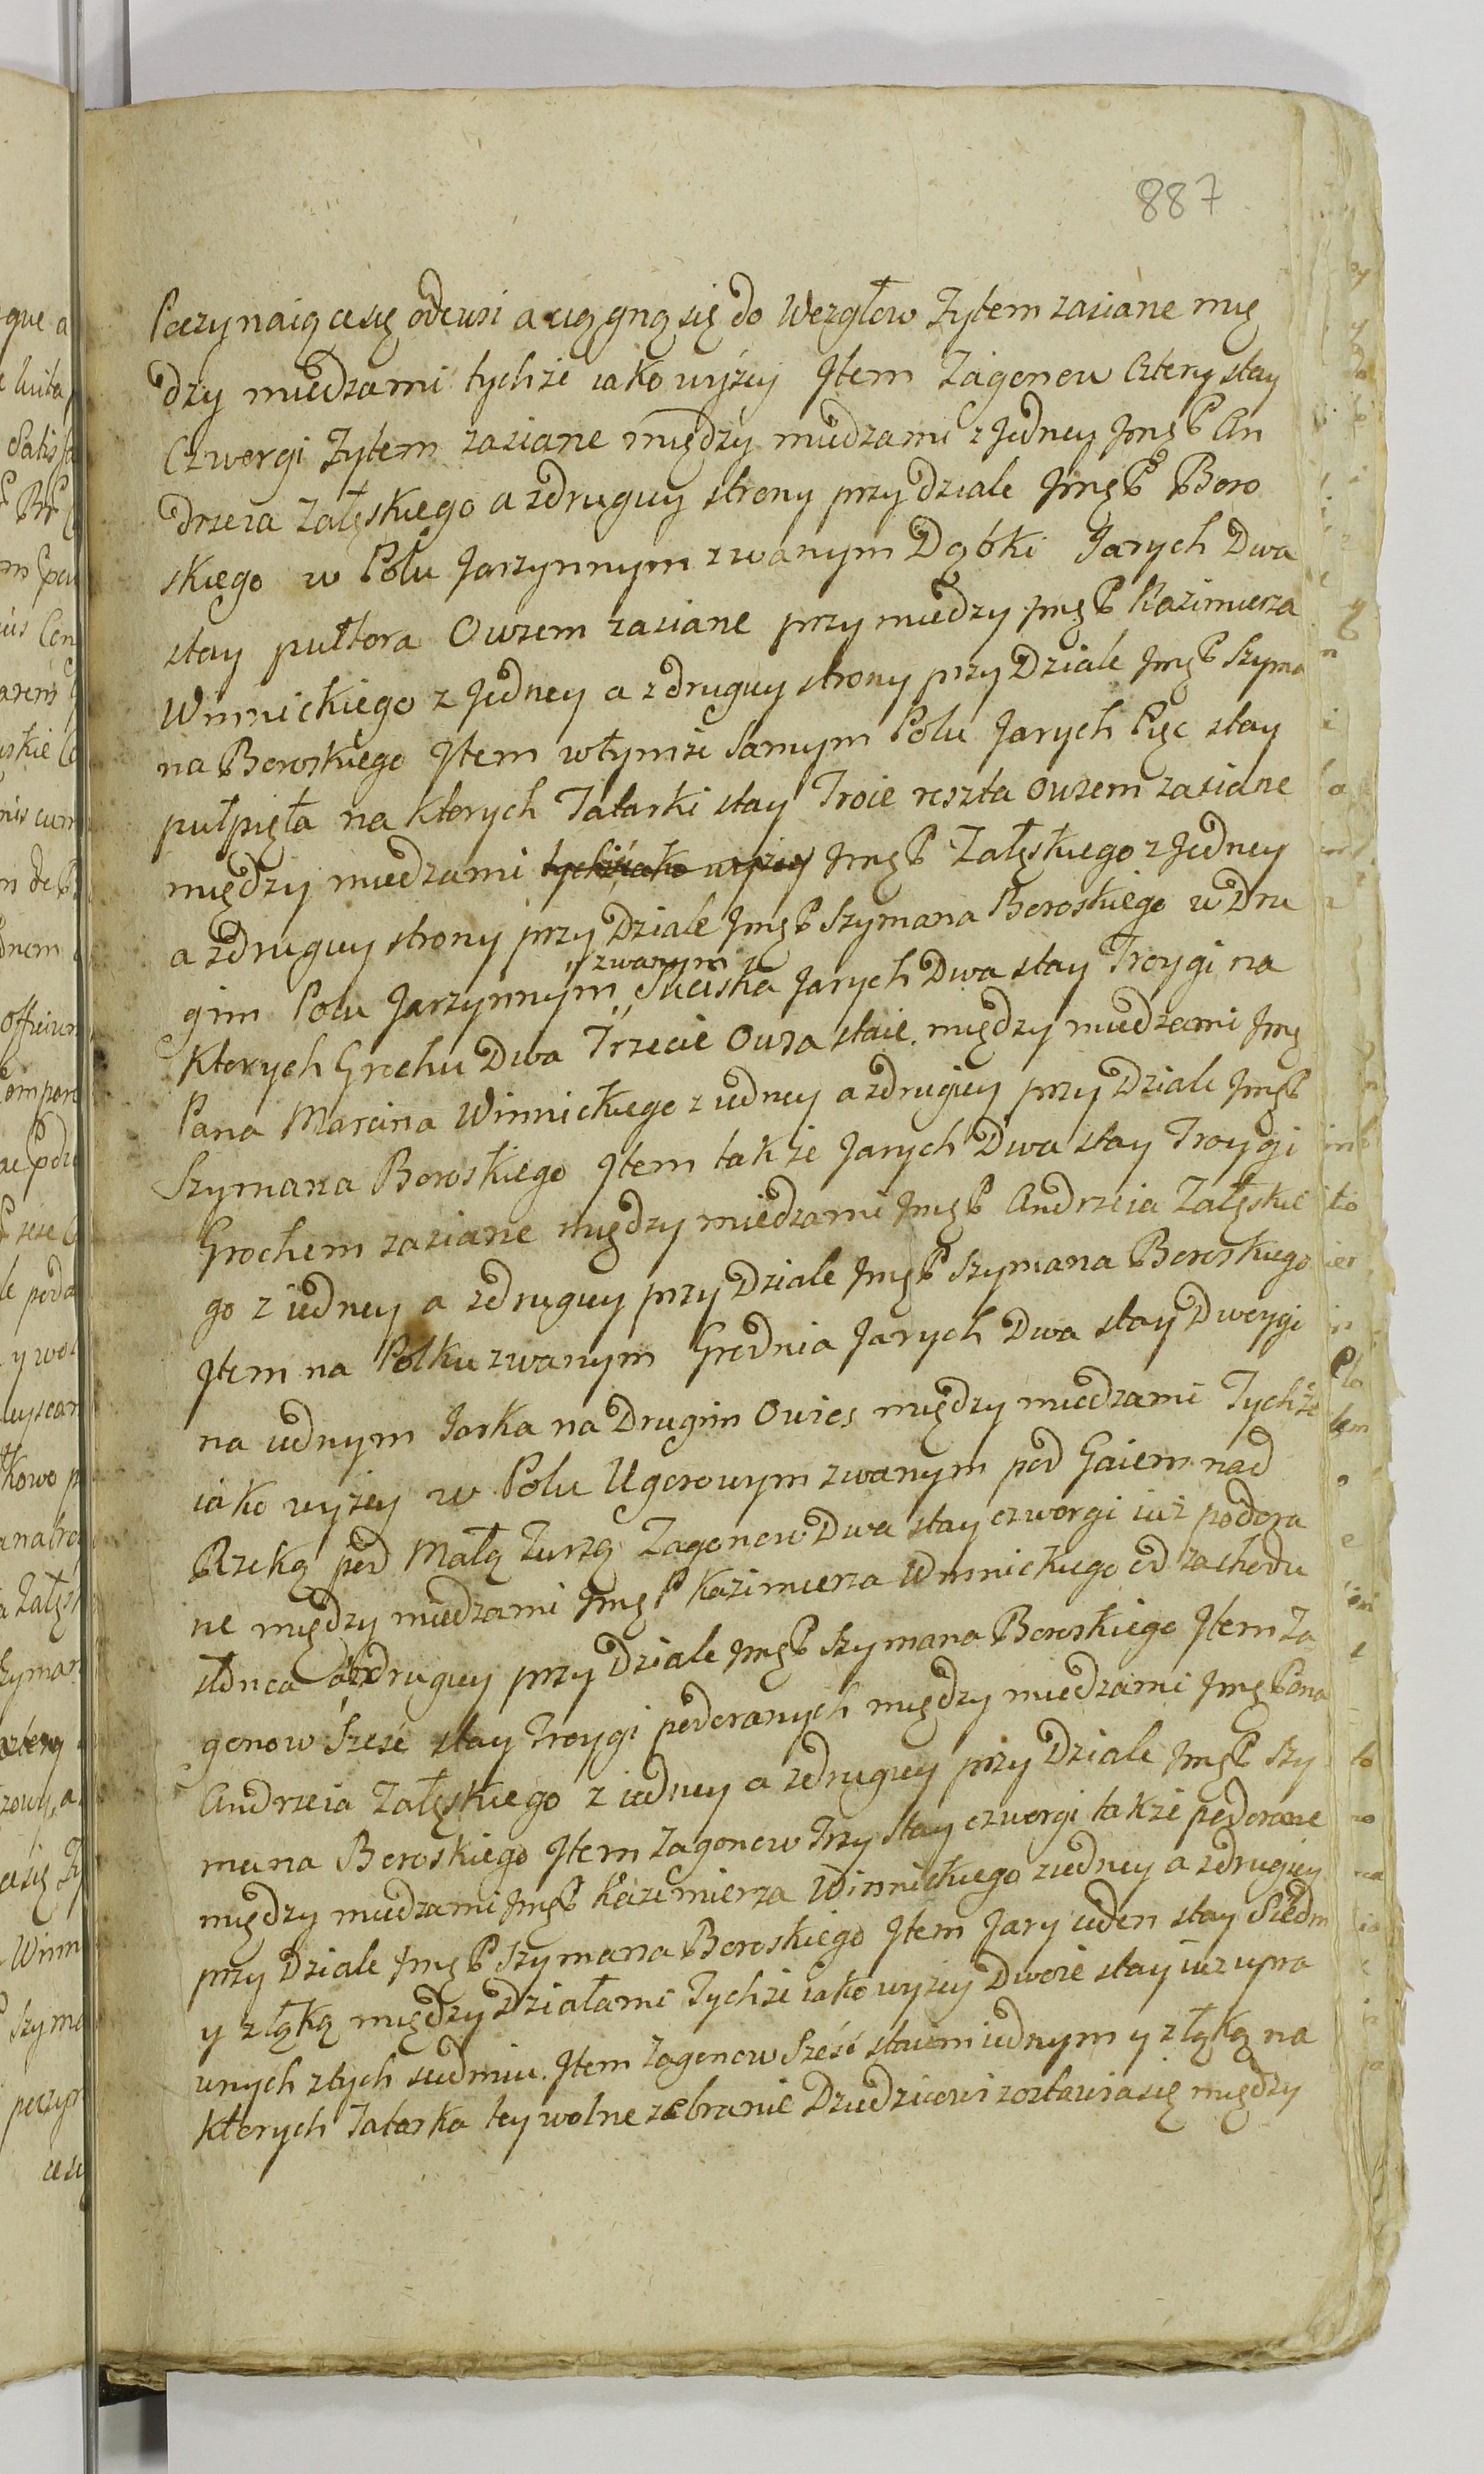 887
Poczynaiącesię odewsi a ciągną się do Wezgłow Zytem zasiane mię
dzy miedzami tychże iako wyżey Jtem Zagonow Cztery stay
Czworgi Zytem zasiane między miedzami z Jedney Jmę P An
drzeia Załęskiego a zdrugiey strony przy dziale Jmę P Boro
skiego w Polu Jarzynnym zwanym Dąbki Jarych Dwa
stay pułtora Owsem zasiane przy miedzy Jmę P Kazimierza
Winnickięgo z Jedney a zdrugiey strony przy Dziale Jmę P Szyma
na Boroskiego Jtem wtymże Samym Polu Jarych Pięc stay
pułpięta na ktorych Tatarki stay Troie reszta owsem zasiane
między miedzami tychże iako wyżey Jmę P Załęskiego z Jedney
a zdrugiey strony przy Dziale Jmę P Szymana Boroskiego w Dru
gim Polu Jarzynnym zwanym Jarych Dwa stay Troygi na
Ktorych Grochu Dwa Trzecie Owsa staie między miedzami Jmę
Pana Marcina Winnickiego z iedney a zdrugiey przy Dziale Jmę P
Szymana Boroskiego Jtem także Jarych Dwa stay Troygi
Grochem zasiane między miedzami Jmę P Andrzeia Załęskie
go z iedney a zdrugiey przy Dziale Jmę P Szymana Boroskiego
Jtem na Polku zwanym Grednia Jarych Dwa stay Dwoygi
na iednym Jarka na Drugim Owies między miedzami Tychże
iako wyżey w Polu Ugorowym zwanym pod Gaiem nad
Rzeką pod Małą Zurzą Zagonow Dwa stay czworgi iuż podora
ne między miedzami Jmę P Kazimierza Winnickiego od zachodu
słonca a zdrugiey przy Dziale Jmę P Szymana Boroskiego Jtem Za
gonow Sześć stay Troygi podoranych między miedzami Jmę Pana
Andrzeia Załęskiego z iedney a zdrugiey przy Dziale Jmę P Szy
mana Boroskiego Jtem Zagonow Trzy stay czworgi także podorane
między miedzami Jmę P Kazimierza Winnickiego ziedney a zdrugiey
przy Dziale Jmę P Szymana Boroskiego Jtem Jary ieden stay Siedm
y złąką między Działami Tychże iako wyżey Dwoie stay iuż upra
wnych ztych siedmiu. Jtem Zagonow Sześć staiem iednym y złąką na
Ktorych Tatarka tey wolne zebranie Dziedzicowi zostawia się między